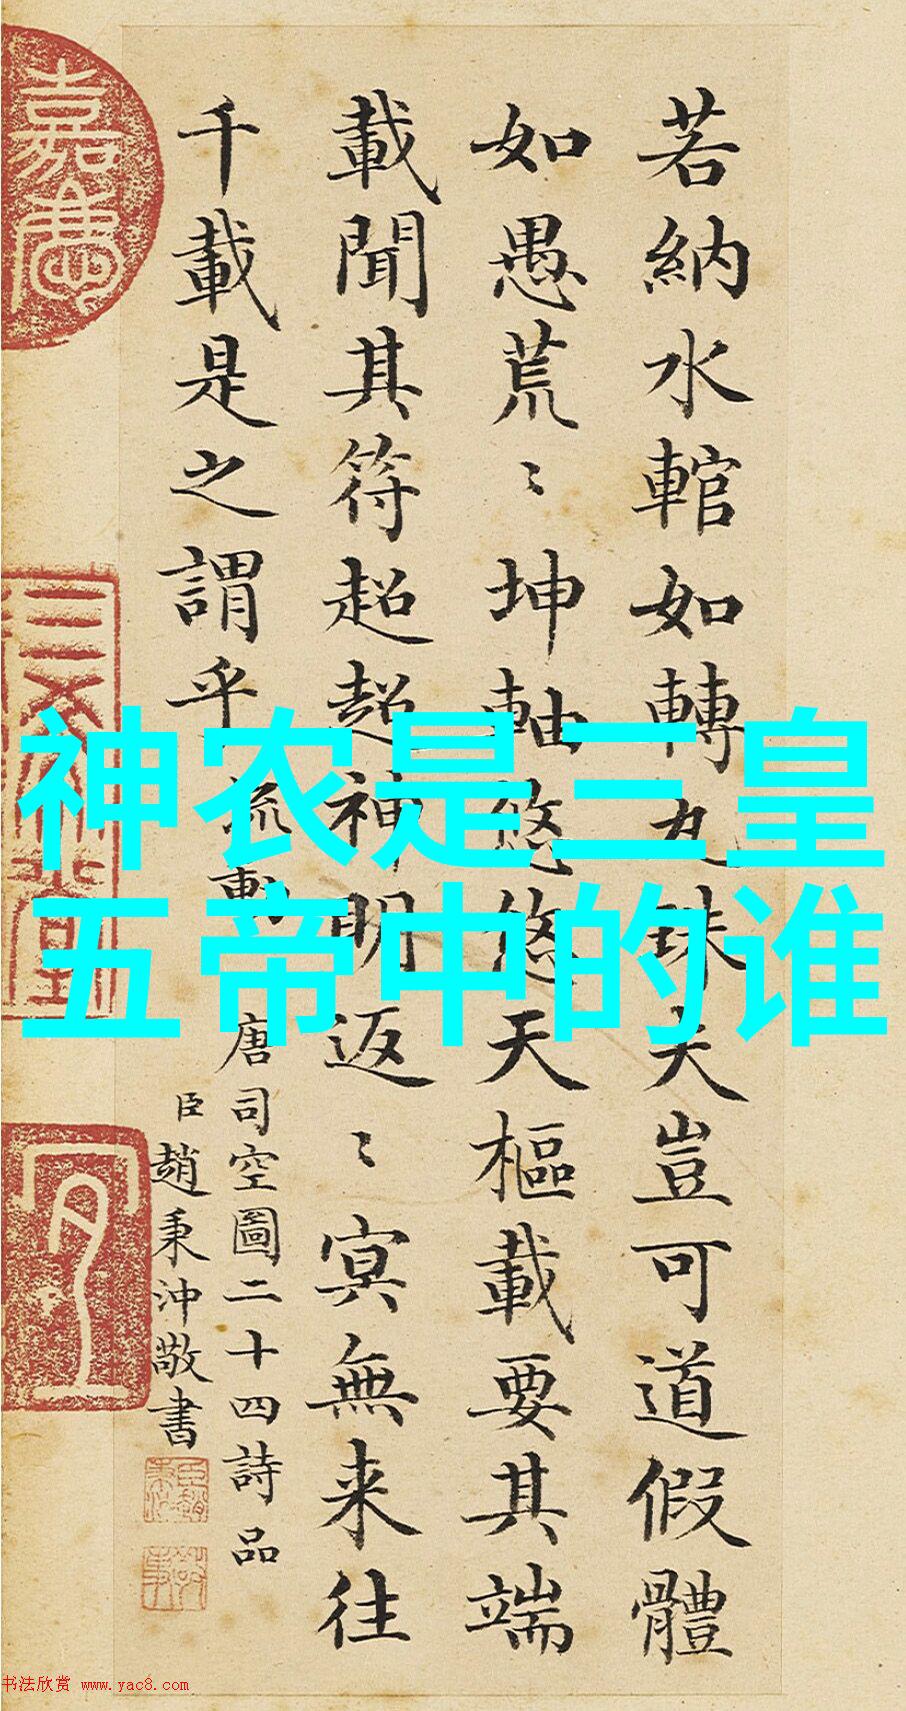 神农是三皇
五帝中的谁
若納水輨如轉丸珠夫豈可道假體
如愚荒〻坤軸悠悠天樞載要其端
載聞其符超超神明返〻冥無来往
千載是之謂乎
流動
唐司空圖二十四詩品
臣趙秉沖敬書
嘉慶
书法欣赏 www.yac8.com